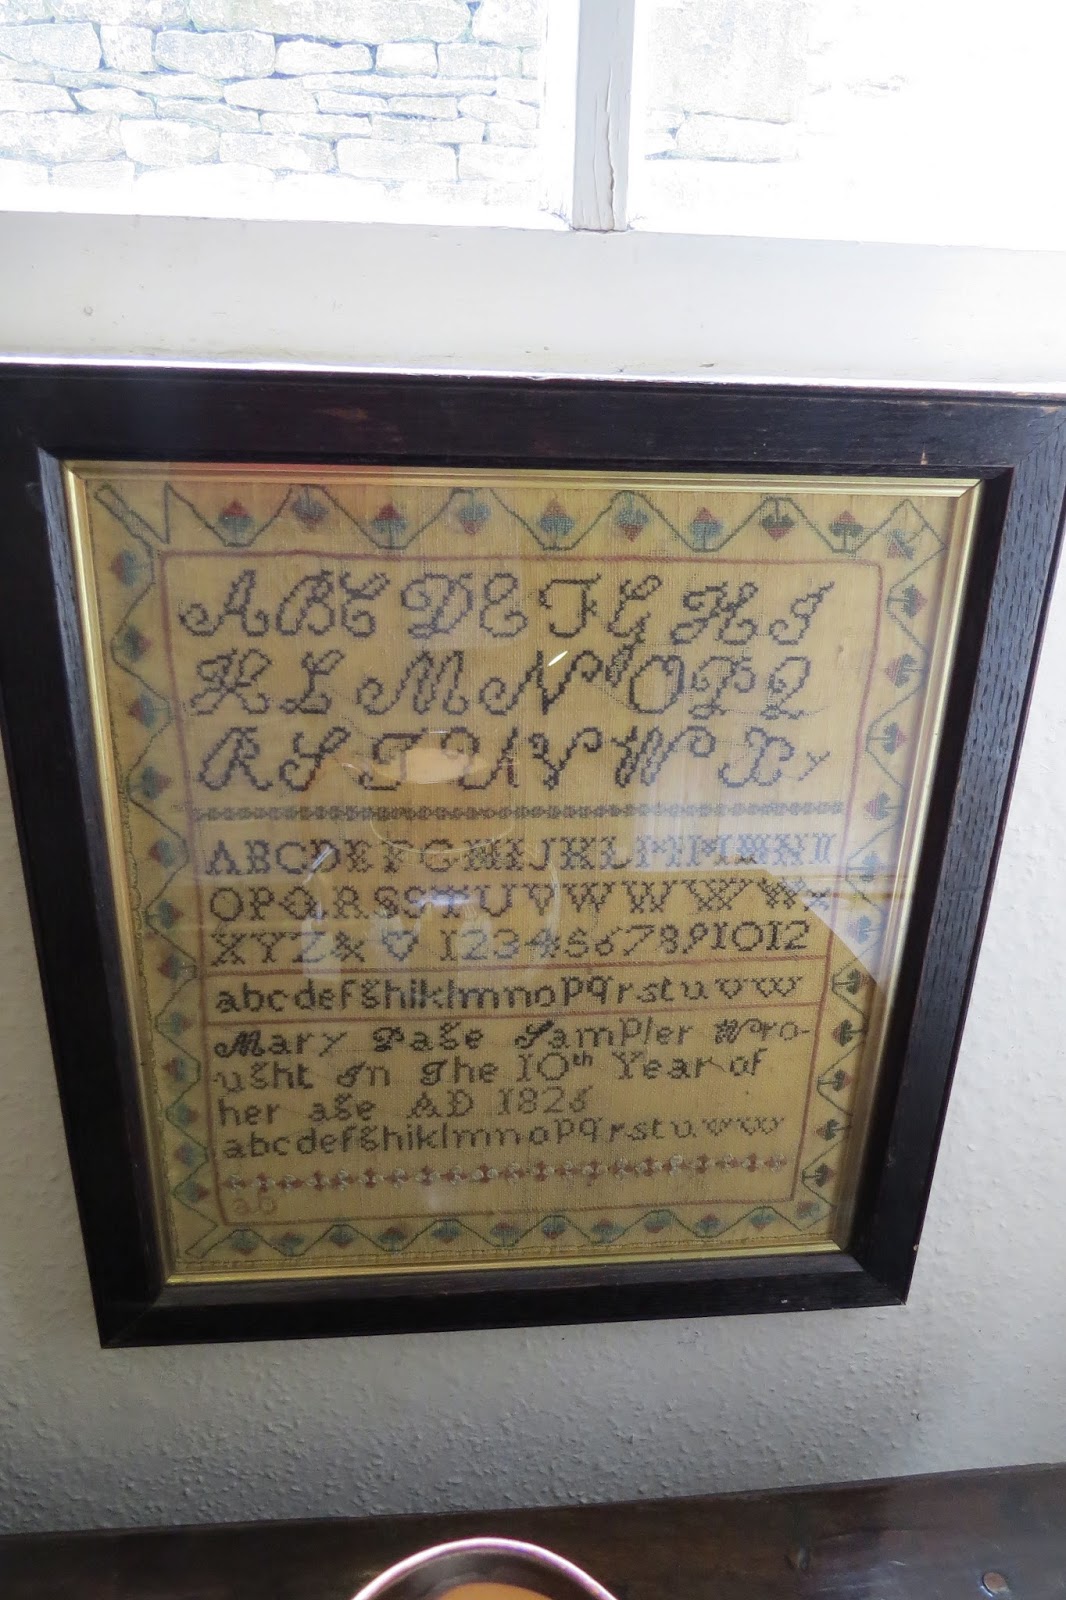 A B C D E F G H I
K L M N O P Q
R S T U V W X y
A B C D E F G H I J K L M M N
O P Q R S S T U V W W W W x
X Y Z & ♡ 1 2 3 4 5 6 7 8 9 10 12
a b c d e f g h i k l m n o p q r s t u v w
Mary Page Sampler Wro-
ught In The 10th Year of
her age AD 1826
a b c d e f g h i k l m n o p q r s t u v w